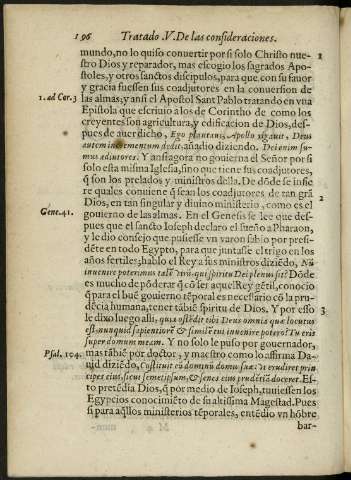 196 Tratado .V. De las consideraciones.
mundo, no lo quiso conuertir por si solo Christo nue- 1
stro Dios y reparador, mas escogio los sagrados Apo-
stoles, y otros sanctos discipulos, para que con su fauor
y gracia fuessen sus coadjutores en la conuersion de
1. ad Cor. 3 las almas; y ansi el Apostol Sant Pablo tratando en vna
Epistola que escriuio a los de Corintho de como los
creyentes son agricultura, y edificacion de Dios, des-
pues de auer dicho, Ego plantaui, Apollo rigauit, Deus
autem incrementum dedit. añadio diziendo. Dei enim su-
mus adiutores. Y ansi agora no gouierna el Señor por si
solo esta misma Iglesia, sino que tiene sus coadjutores,
q̃ son los prelados y ministros della. De dõde se infie
re quales conuiene q̃ sean los coadjutores de tan grã
Dios, en tan singular y diuino ministerio, como es el 2
gouierno de las almas. En el Genesis se lee que des-
Gene. 41. pues que el sancto Ioseph declaro el sueño a Pharaon,
y le dio consejo que pusiesse vn varon sabio por presi-
dẽte en todo Egypto, para que juntasse el trigo en los
años fertiles, hablo el Rey a sus ministros diziẽdo, Nũ
inuenire poterimus talẽ virũ, qui spiritu Dei plenus sit? Dõde
es mucho de põderar q̃ cõ ser aquel Rey gẽtil, conocio
q̃ para el buẽ gouierno tẽporal es necesario cõ la pru-
dẽcia humana, tener tãbiẽ spiritu de Dios. Y por esso 3
le dixo luego alli, quia ostẽdit tibi Deus omnia quæ locutus
est, nunquid sapientiorẽ & similẽ tui inuenire potero? Tu eris
super domum meam. Y no solo le puso por gouernador,
Psal. 104. mas tãbiẽ por doctor, y maestro como lo affirma Da-
uid diziẽdo, Cõstituit eũ dominũ domu suæ: vt erudiret prin-
cipes eius, sicut semetipsum, & senes eius prudẽtiã doceret. Es-
to pretẽdia Dios, q̃ por medio de Ioseph, tuuiessen los
Egypcios conocimiẽto de su altissima Magestad. Pues
si para aq̃llos ministerios tẽporales, entẽdio vn hõbre
bar-